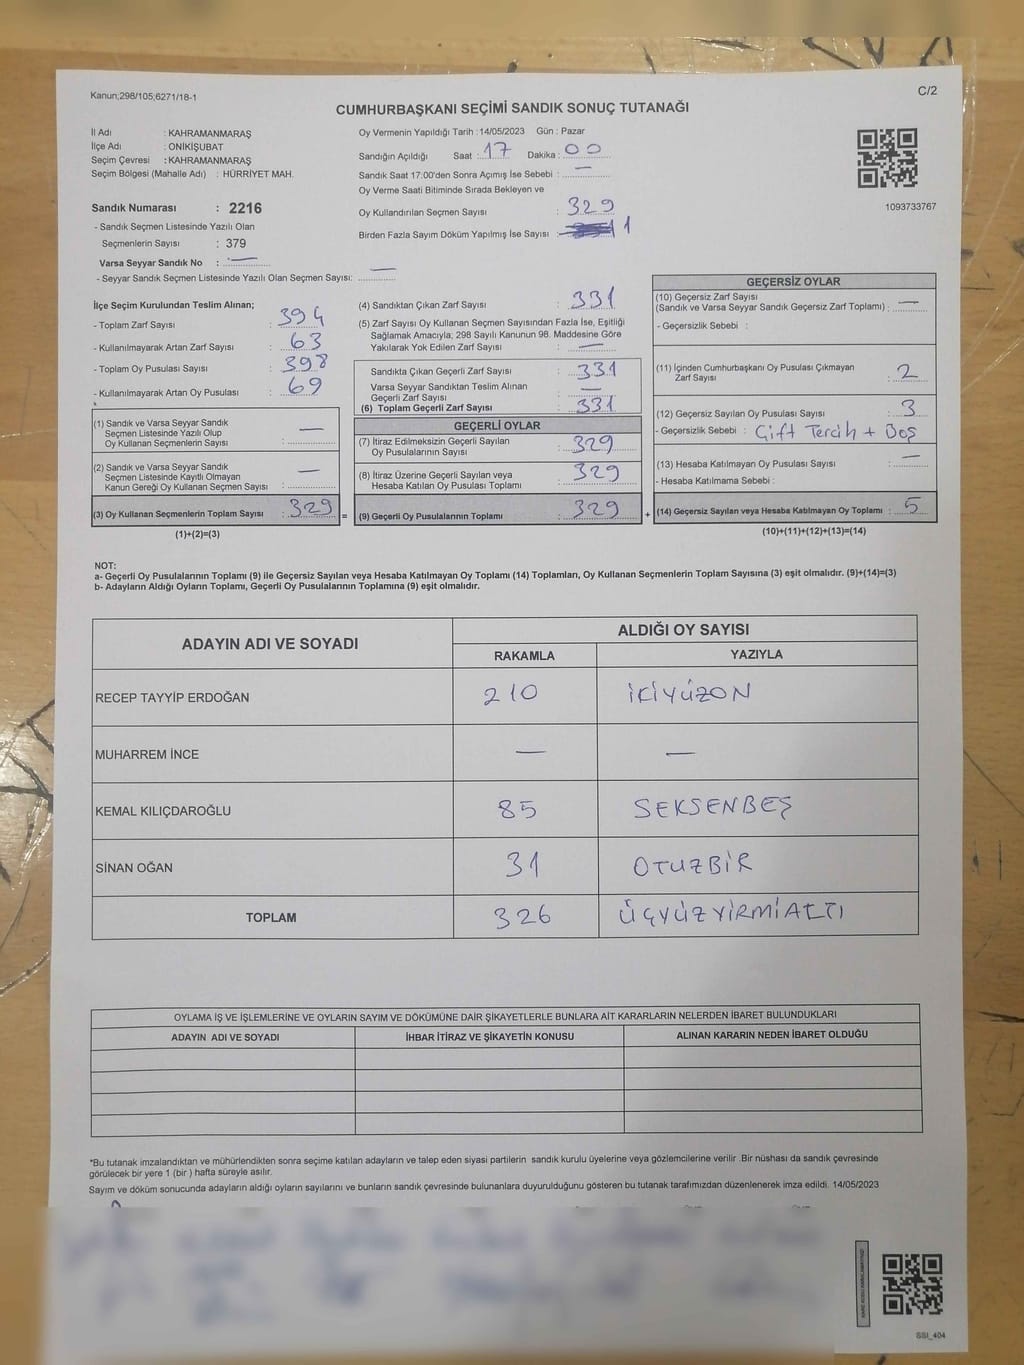 Kanun;298/105;6271/18-1
C/2
CUMHURBAŞKANI SEÇİMİ SANDIK SONUÇ TUTANAĞI
İl Adı : KAHRAMANMARAŞ
İlçe Adı : ONİKİŞUBAT
Seçim Çevresi : KAHRAMANMARAŞ
Seçim Bölgesi (Mahalle Adı) : HÜRRİYET MAH.
Sandık Numarası : 2216
- Sandık Seçmen Listesinde Yazılı Olan
Seçmenlerin Sayısı : 379
Varsa Seyyar Sandık No : —
- Seyyar Sandık Seçmen Listesinde Yazılı Olan Seçmen Sayısı: —
Oy Vermenin Yapıldığı Tarih : 14/05/2023 Gün : Pazar
Sandığın Açıldığı Saat : 17 Dakika : 00
Sandık Saat 17:00'den Sonra Açımış İse Sebebi : —
Oy Verme Saati Bitiminde Sırada Bekleyen ve
Oy Kullandırılan Seçmen Sayısı : 329
Birden Fazla Sayım Döküm Yapılmış İse Sayısı : 1
1093733767
İlçe Seçim Kurulundan Teslim Alınan;
- Toplam Zarf Sayısı : 394
- Kullanılmayarak Artan Zarf Sayısı : 63
- Toplam Oy Pusulası Sayısı : 398
- Kullanılmayarak Artan Oy Pusulası : 69
(1) Sandık ve Varsa Seyyar Sandık
Seçmen Listesinde Yazılı Olup
Oy Kullanan Seçmenlerin Sayısı : —
(2) Sandık ve Varsa Seyyar Sandık
Seçmen Listesinde Kayıtlı Olmayan
Kanun Gereği Oy Kullanan Seçmen Sayısı : —
(3) Oy Kullanan Seçmenlerin Toplam Sayısı : 329 =
(1)+(2)=(3)
(4) Sandıktan Çıkan Zarf Sayısı : 331
(5) Zarf Sayısı Oy Kullanan Seçmen Sayısından Fazla İse, Eşitliği
Sağlamak Amacıyla, 298 Sayılı Kanunun 98. Maddesine Göre
Yakılarak Yok Edilen Zarf Sayısı : —
Sandıkta Çıkan Geçerli Zarf Sayısı : 331
Varsa Seyyar Sandıktan Teslim Alınan
Geçerli Zarf Sayısı : —
(6) Toplam Geçerli Zarf Sayısı : 331
GEÇERLİ OYLAR
(7) İtiraz Edilmeksizin Geçerli Sayılan
Oy Pusulalarının Sayısı : 329
(8) İtiraz Üzerine Geçerli Sayılan veya
Hesaba Katılan Oy Pusulası Toplamı : 329
(9) Geçerli Oy Pusulalarının Toplamı : 329 +
GEÇERSİZ OYLAR
(10) Geçersiz Zarf Sayısı
(Sandık ve Varsa Seyyar Sandık Geçersiz Zarf Toplamı) : —
- Geçersizlik Sebebi :
(11) İçinden Cumhurbaşkanı Oy Pusulası Çıkmayan
Zarf Sayısı : 2
(12) Geçersiz Sayılan Oy Pusulası Sayısı : 3
- Geçersizlik Sebebi : Çift Tercih + Boş
(13) Hesaba Katılmayan Oy Pusulası Sayısı : —
- Hesaba Katılmama Sebebi :
(14) Geçersiz Sayılan veya Hesaba Katılmayan Oy Toplamı : 5
(10)+(11)+(12)+(13)=(14)
NOT:
a- Geçerli Oy Pusulalarının Toplamı (9) ile Geçersiz Sayılan veya Hesaba Katılmayan Oy Toplamı (14) Toplamları, Oy Kullanan Seçmenlerin Toplam Sayısına (3) eşit olmalıdır. (9)+(14)=(3)
b- Adayların Aldığı Oyların Toplamı, Geçerli Oy Pusulalarının Toplamına (9) eşit olmalıdır.
ADAYIN ADI VE SOYADI
ALDIĞI OY SAYISI
RAKAMLA YAZIYLA
RECEP TAYYİP ERDOĞAN 210 İKİYÜZON
MUHARREM İNCE — —
KEMAL KILIÇDAROĞLU 85 SEKSENBEŞ
SİNAN OĞAN 31 OTUZBİR
TOPLAM 326 ÜÇYÜZYİRMİALTI
OYLAMA İŞ VE İŞLEMLERİNE VE OYLARIN SAYIM VE DÖKÜMÜNE DAİR ŞİKAYETLERLE BUNLARA AİT KARARLARIN NELERDEN İBARET BULUNDUKLARI
ADAYIN ADI VE SOYADI İHBAR İTİRAZ VE ŞİKAYETİN KONUSU ALINAN KARARIN NEDEN İBARET OLDUĞU
*Bu tutanak imzalandıktan ve mühürlendikten sonra seçime katılan adayların ve talep eden siyasi partilerin sandık kurulu üyelerine veya gözlemcilerine verilir .Bir nüshası da sandık çevresinde
görülecek bir yere 1 (bir ) hafta süreyle asılır.
Sayım ve döküm sonucunda adayların aldığı oyların sayılarını ve bunların sandık çevresinde bulunanlara duyurulduğunu gösteren bu tutanak tarafımızdan düzenlenerek imza edildi. 14/05/2023
SSI_404